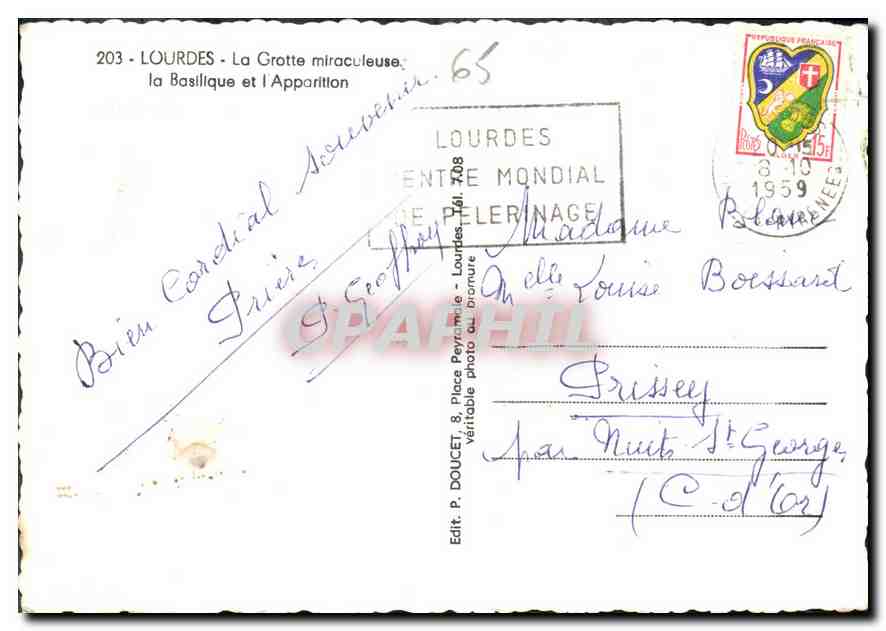 203 - LOURDES - La Grotte miraculeuse,
la Basilique et l'Apparition
65
Bien Cordial souvenir.
Prières
P Geoffroy
LOURDES
CENTRE MONDIAL
DE PELERINAGE
REPUBLIQUE FRANÇAISE
POSTES 15F
ALGER
8-10
1959
Edit. P. DOUCET, 8, Place Peyramale - Lourdes. Tél. 7.08
véritable photo au bromure
CPAPHIL
Madame
Melle Louise Boissard
Prissey
par Nuits St Georges
(C-d'Or)